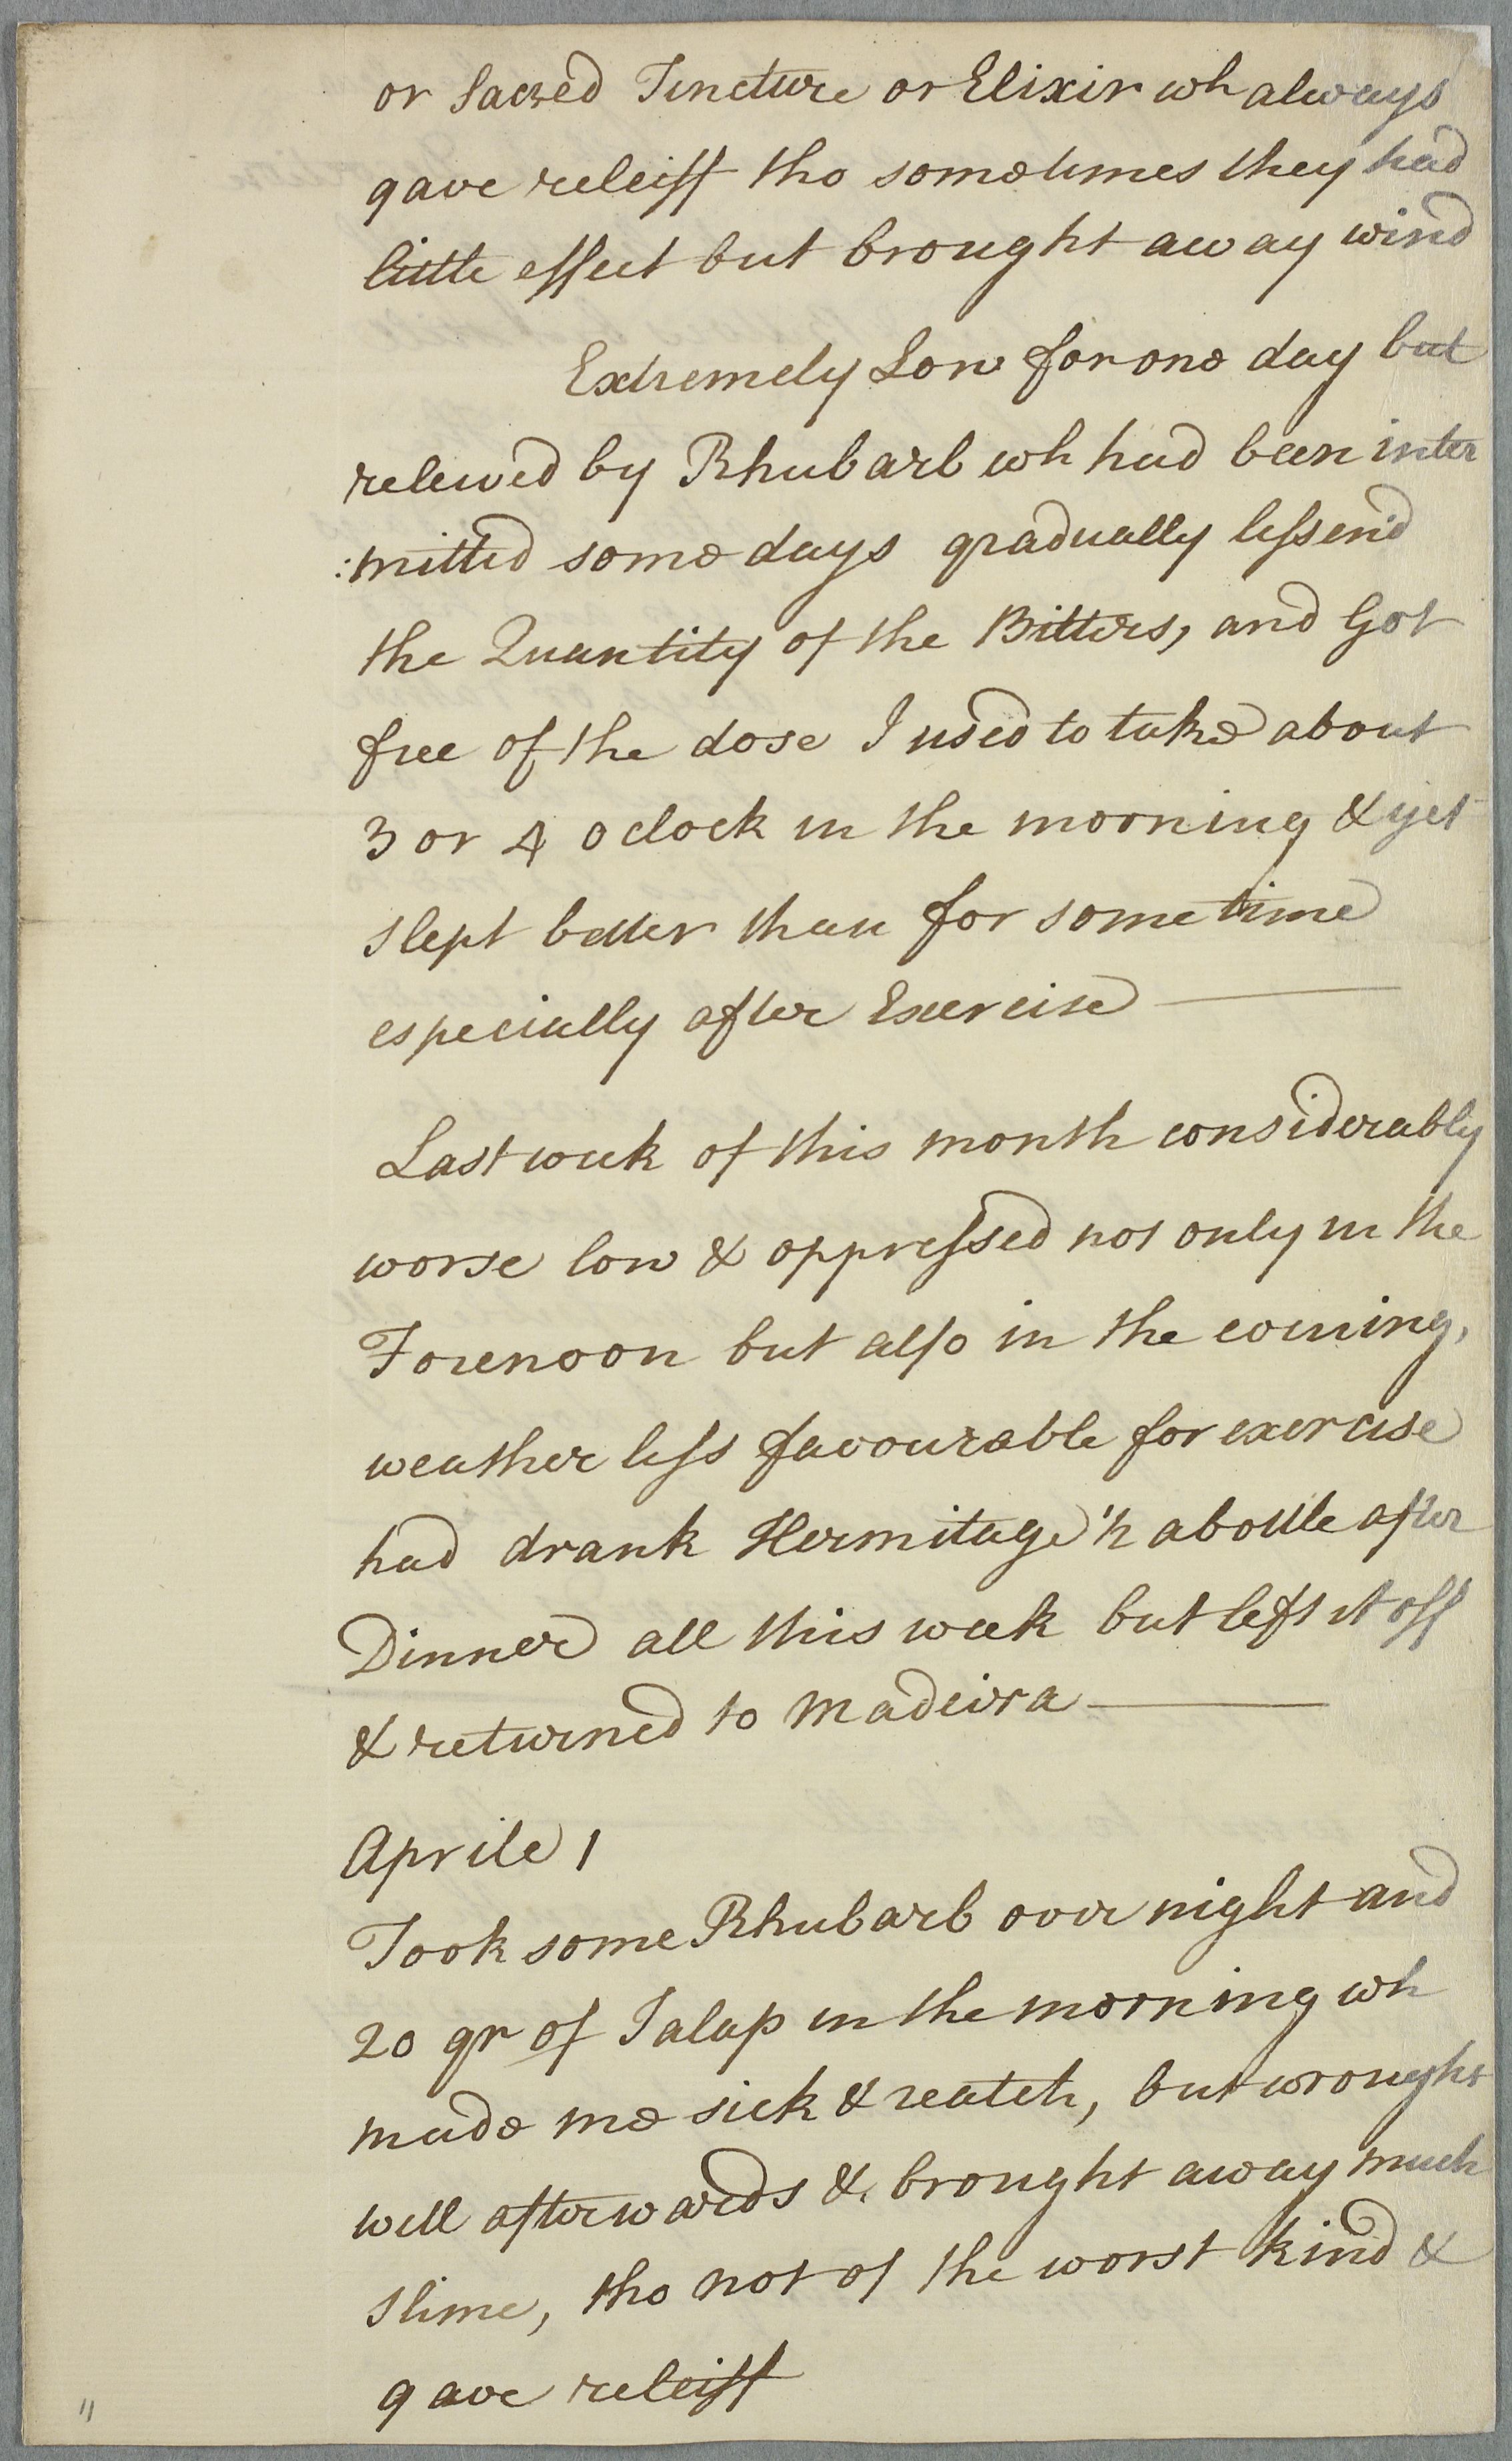 or Sacred Tincture or Elixir wh always
gave releiff tho sometimes they had
little effect but brought away wind
Extremely Low for one day but
releived by Rhubarb wh had been inter
:mitted some days gradually lessend
the Quantity of the Bitters, and Got
free of the dose I used to take about
3 or 4 o clock in the morning & yet
slept better than for some time
especially after Exercise
Last week of this month considerably
worse low & oppressed not only in the
Forenoon but also in the evening,
weather less favourable for exercise
had drank Hermitage ½ a bottle after
Dinner all this week but left it off
& returned to Madeira
Aprile 1
Took some Rhubarb over night and
20 gr of Jalap in the morning wh
made me sick & reatch, but wrought
well afterwards & brought away much
slime, tho not of the worst kind &
gave releiff
11